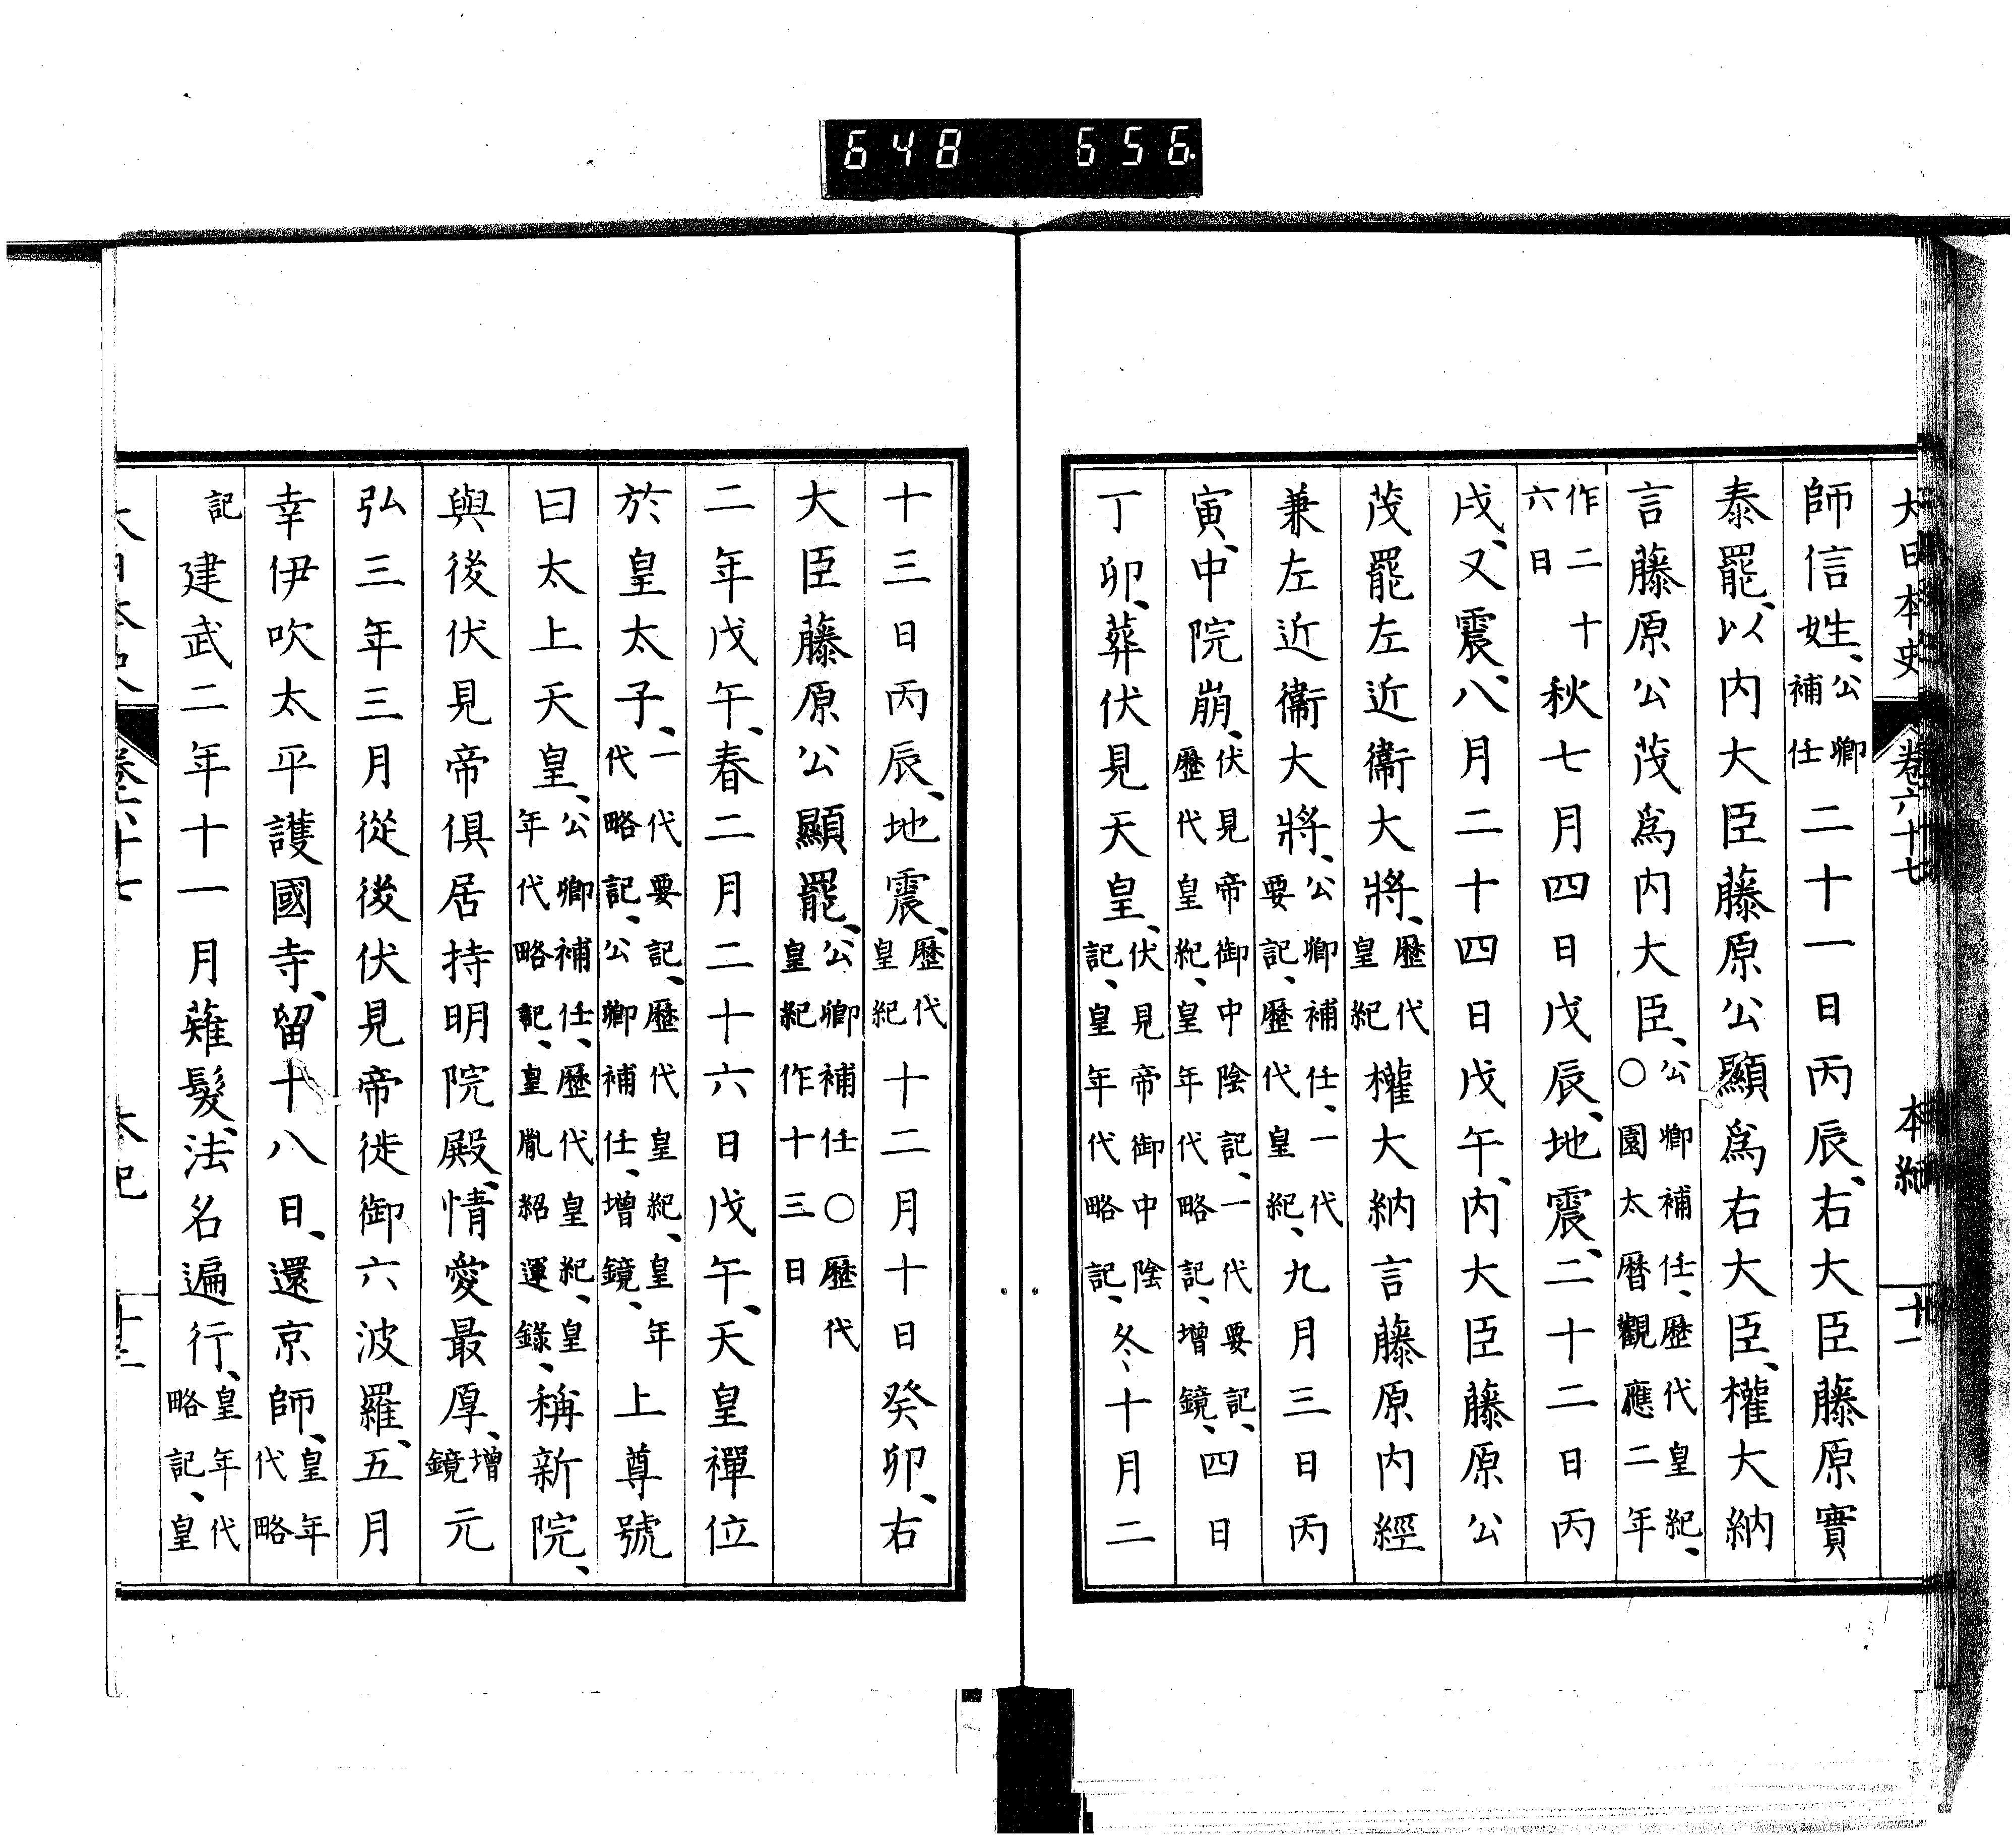 大日本史 卷六十七 本紀 十一
師信姓、公卿補任二十一日丙辰、右大臣藤原實
泰罷、以内大臣藤原公顯爲右大臣、權大納
言藤原公茂爲内大臣、公卿補任、歷代皇紀、○園太曆觀應二年
作二十六日秋七月四日戊辰、地震、二十二日丙
戌、又震、八月二十四日戊午、内大臣藤原公
茂罷左近衞大將、歷代皇紀權大納言藤原内經
兼左近衞大將、公卿補任、一代要記、歷代皇紀、九月三日丙
寅、中院崩、伏見帝御中陰記、一代要記、歷代皇紀、皇年代略記、增鏡、四日
丁卯、葬伏見天皇、伏見帝御中陰記、皇年代略記、冬、十月二
十三日丙辰、地震、歷代皇紀十二月十日癸卯、右
大臣藤原公顯罷、公卿補任○歷代皇紀作十三日
二年戊午、春二月二十六日戊午、天皇禪位
於皇太子、一代要記、歷代皇紀、皇年代略記、公卿補任、增鏡、上尊號
曰太上天皇、公卿補任、歷代皇紀、皇年代略記、皇胤紹運錄、稱新院、
與後伏見帝俱居持明院殿、情愛最厚、增鏡元
弘三年三月從後伏見帝徙御六波羅、五月
幸伊吹太平護國寺、留十八日、還京師、皇年代略
記建武二年十一月薙髮、法名遍行、皇年代略記、皇
大日本史 卷六十七 本紀 十二
648 656